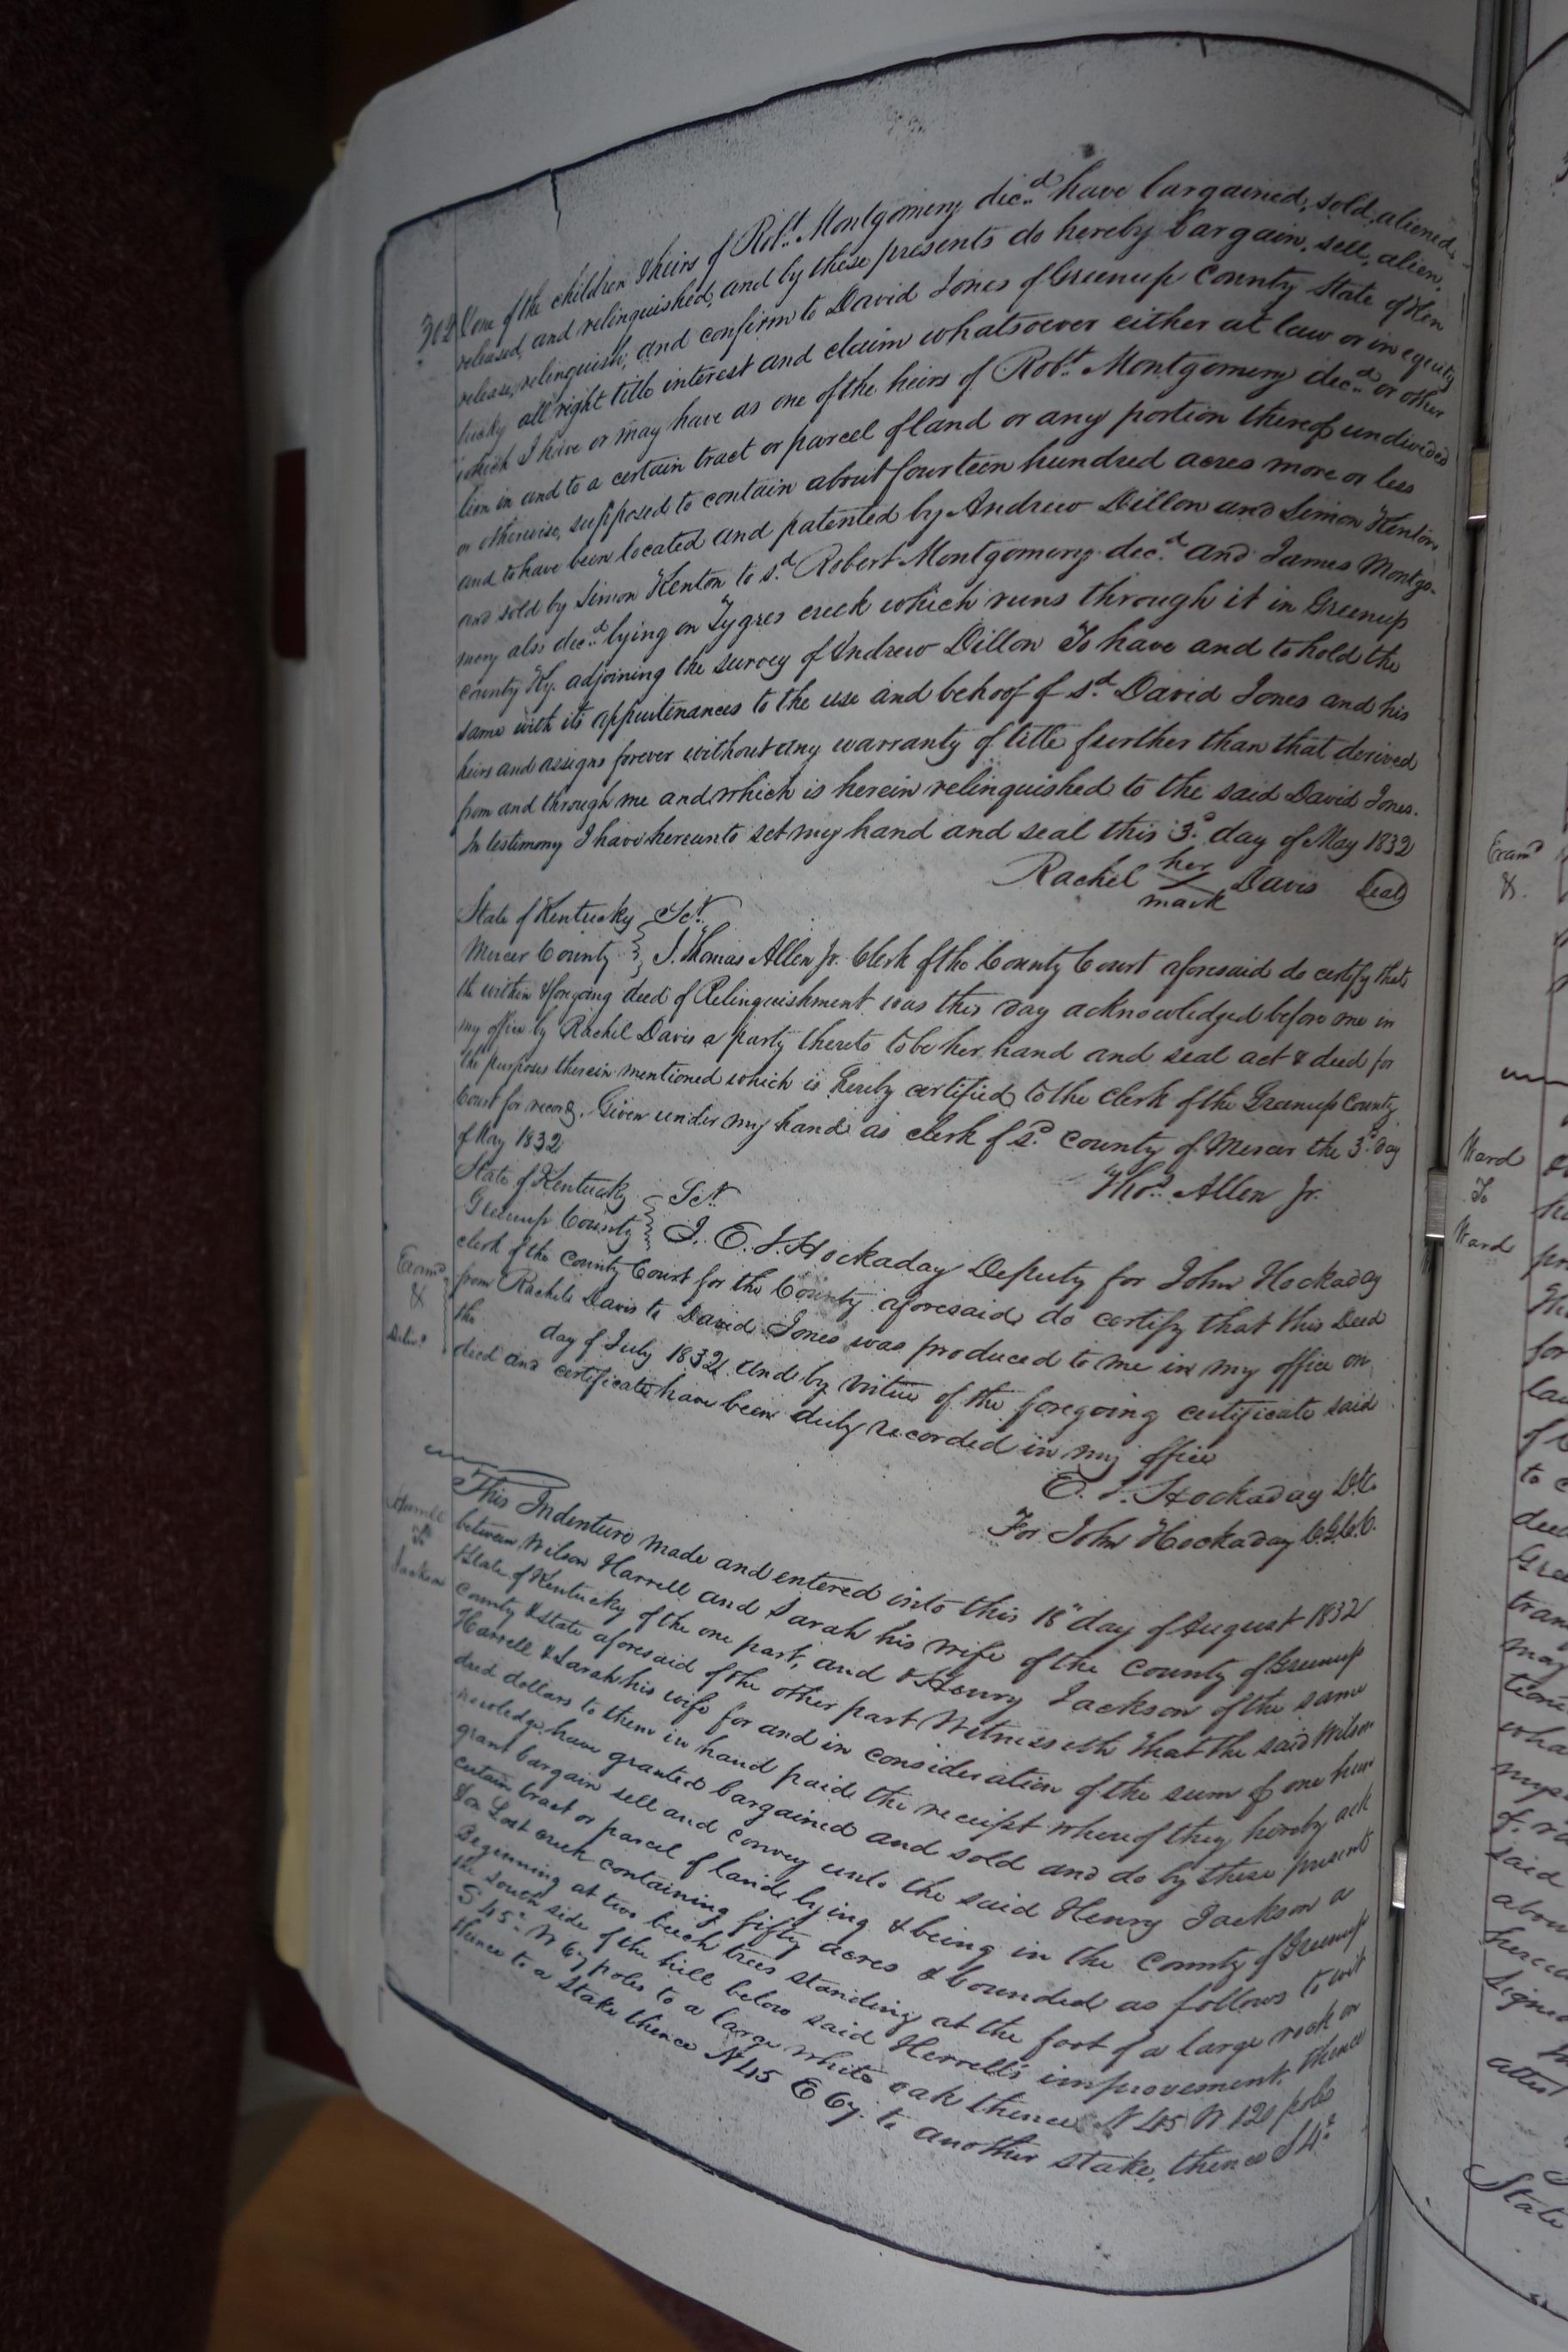 302 One of the children & heirs of Robt. Montgomery dec.d have bargained, sold, aliened,
released, and relinquished, and by these presents do hereby bargain, sell, alien,
release, relinquish, and confirm to David Jones of Greenup County State of Ken
tucky all right title interest and claim whatsoever either at law or in equity
which I have or may have as one of the heirs of Robt. Montgomery dec.d or other
lien in and to a certain tract or parcel of land or any portion thereof undivided
or otherwise, supposed to contain about fourteen hundred acres more or less
and to have been located and patented by Andrew Dillon and Simon Kenton
and sold by Simon Kenton to s.d Robert Montgomery dec.d and James Montgo-
mery also dec.d lying on Tygres creek which runs through it in Greenup
county Ky. adjoining the survey of Andrew Dillon To have and to hold the
same with its appurtenances to the use and behoof of s.d David Jones and his
heirs and assigns forever without any warranty of title further than that derived
from and through me and which is herein relinquished to the said David Jones.
In testimony I have hereunto set my hand and seal this 3.d day of May 1832
Rachel her mark Davis Seal
State of Kentucky Sct.
Mercer County I. Thomas Allen Jr. Clerk of the County Court aforesaid do certify that
the within & foregoing deed of Relinquishment was this day acknowledged before me in
my office by Rachel Davis a party thereto to be her hand and seal act & deed for
the purposes therein mentioned which is hereby certified to the clerk of the Greenup County
Court for record. Given under my hand as clerk of s.d County of Mercer the 3.d day
of May 1832
Tho.s Allen Jr.
State of Kentucky Sct.
Greenup County I. E. S. Hockaday Deputy for John Hockaday
clerk of the County Court for the County aforesaid do certify that this Deed
Exam.d & Deliv.d
from Rachels Davis to David Jones was produced to me in my office on
the day of July 1832 and by virtue of the foregoing certificate said
deed and certificate have been duly recorded in my office
E. S. Hockaday D.C.
For John Hockaday C.G.C.C.
Harrell To Jackson
This Indenture made and entered into this 18" day of August 1832
between Wilson Harrell and Sarah his wife of the County of Greenup
State of Kentucky of the one part, and & Henry Jackson of the same
County & State aforesaid of the other part Witnesseth that the said Wilson
Harrell & Sarah his wife for and in consideration of the sum of one hun
dred dollars to them in hand paid the receipt whereof they hereby ack
nowledge have granted bargained and sold and do by these presents
grant bargain sell and convey unto the said Henry Jackson a
certain tract or parcel of land lying & being in the County of Greenup
on Lost creek containing fifty acres & bounded as follows to wit
Beginning at two beech trees standing at the foot of a large rock on
the South side of the hill below said Herrell's improvement, thence
S 45° W 67 poles to a large white oak thence N 45 W 120 poles
thence to a Stake thence N 45 E 67. to another stake, thence S 4
Exam.d
&.
Ward
To
Ward
State